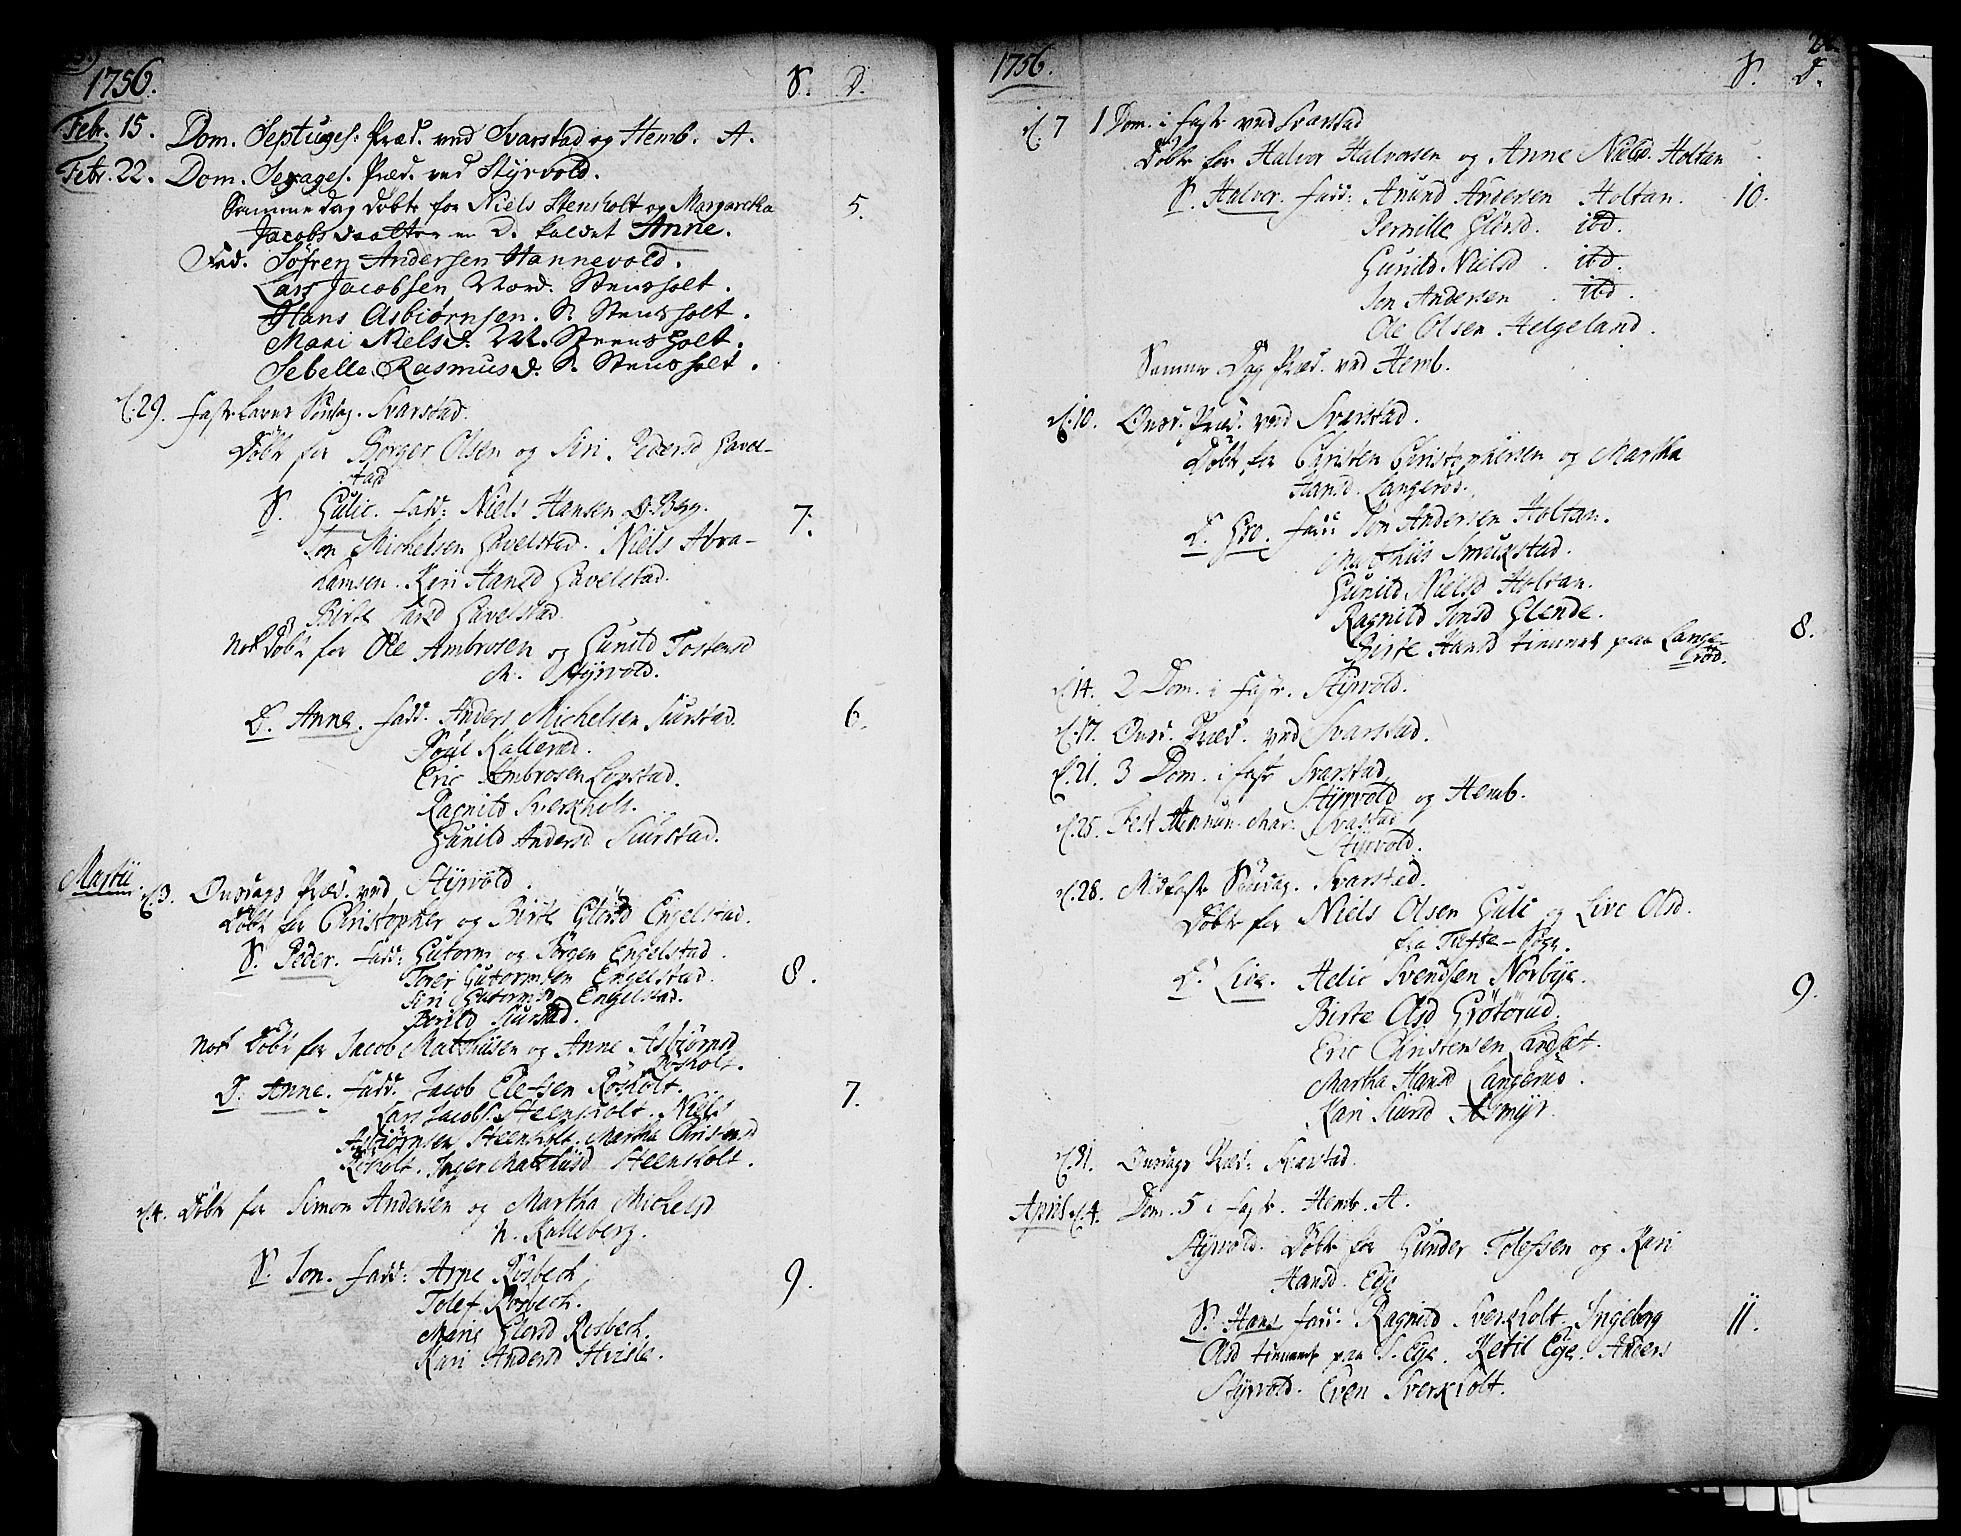 1756. S. D.
Febr. 15. Dom. Septuages: Præd. ved Svarstad og Hemb. A.
Febr. 22. Dom. Sexages. Præd. ved Styrvold.
Samme dag døbt for Niels Stensholt og Margaretha 5.
Jacobsdaatter en D. kaldet Anne.
Fad. Søfren Andersen Hannevold.
Lars Jacobsen Nord. Stensholt.
Hans Asbiørnsen. S. Stensholt.
Mari Nielsd. M. Steensholt.
Sebelle Rasmusd. S. Stensholt.
d. 29. Faste Lavns Søndag. Svarstad.
Døbt for Borger Olsen og Siri Pedersd Gavel-
stad
S. Gulic. Fadd: Niels Hansen 7.
Jon Michelsen Gavelstad. Niels Abra-
hamsen. Kari Hansd Gavelstad.
Birte Larsd Gavelstad.
Nok Døbt for Ole Ambrosen og Gunild Tostensd
M. Styrvold.
D. Anne. Fadd. Anders Michelsen Siurstad. 6.
Poul Kallerød.
Eric Ambrosen Lopstad.
Ragnild Sverkholt.
Gunild Andersd Siurstad.
Martii d. 3. Onsdags Præd. ved Styrvold.
Døbt for Christopher og Birte Glorsd Engelstad.
S. Peder. Fadd: Gutorm og Jörgen Engelstad. 8.
Torer Gutormsen Engelstad.
Siri Gutormsd Engelstad.
Berild Siurstad.
Nok Døbt for Jacob Mathisen og Anne Asbiørnsd
Røsholt.
D: Anne. Fadd. Jacob Elefsen Røsholt. 7.
Lars Jacobs. Steensholt. Niels
Asbiørnsen Steensholt. Martha Christensd
Røsholt. Inger Mathisd Steensholt.
d. 4. Døbt for Simon Andersen og Martha Michelsd
N. Kalleberg.
S. Jon. Fadd: Arne Risbech 9.
Tolef Risbech.
Maris Glorsd Risbech.
Kari Andersd Hizsle.
1756. S. D.
d. 7 1 Dom. i Faste ved Svarstad
Døbt for Halvor Halvorsen og Anne Nielsd. Holtan
S. Halvor. Fadd: Amund Andersen Holtan. 10.
Pernille Glorsd. ibd.
Gunild Nielsd. ibd.
Jon Andersen ibd.
Ole Olsen Helgeland.
Samme Dag Præd. ved Hemb.
d. 10. Onsd. Præd. ved Svarstad.
Døbt for Christen Christophersen og Martha
Hansd. Langerød.
D. Gro. Fadd: Jon Andersen Holtan.
Mathiis Smukstad.
Gunild Nielsd Holtan.
Ragnild Jonsd Glende. 8.
Birte Hansd tienende paa Lange-
rød.
d. 14. 2 Dom. i Faste. Styrvold.
d. 17. Onsd. Præd. ved Svarstad.
d. 21. 3 Dom. i Faste Svarstad
Styrvold og Hemb.
d. 25. Fest Annun. Mar: Svarstad
Styrvold.
d. 28. Midfaste Søndag. Svarstad.
Døbt for Niels Olsen Gulc og Live Olsd.
fra Tutte-Sogn.
D. Live. Helie Svendsen Nørbye. 9.
Birte Olsd Grøtørud.
Eric Christensen Landset.
Martha Hansd Langerud.
Kari Siursd Asmyr.
d. 31. Onsdags Præd: Svarstad.
April d. 4. Dom. 5 i Faste. Hemb. A.
Styrvold. Døbt for Gunder Tolefsen og Kari
Hansd. Ege
S. Hans Fadd: Ragnild Sverkholt. Ingeborg 11.
Olsd tienende paa S. Ege. Ketil Ege. Anders
Styrvold. Even Sverkholt.